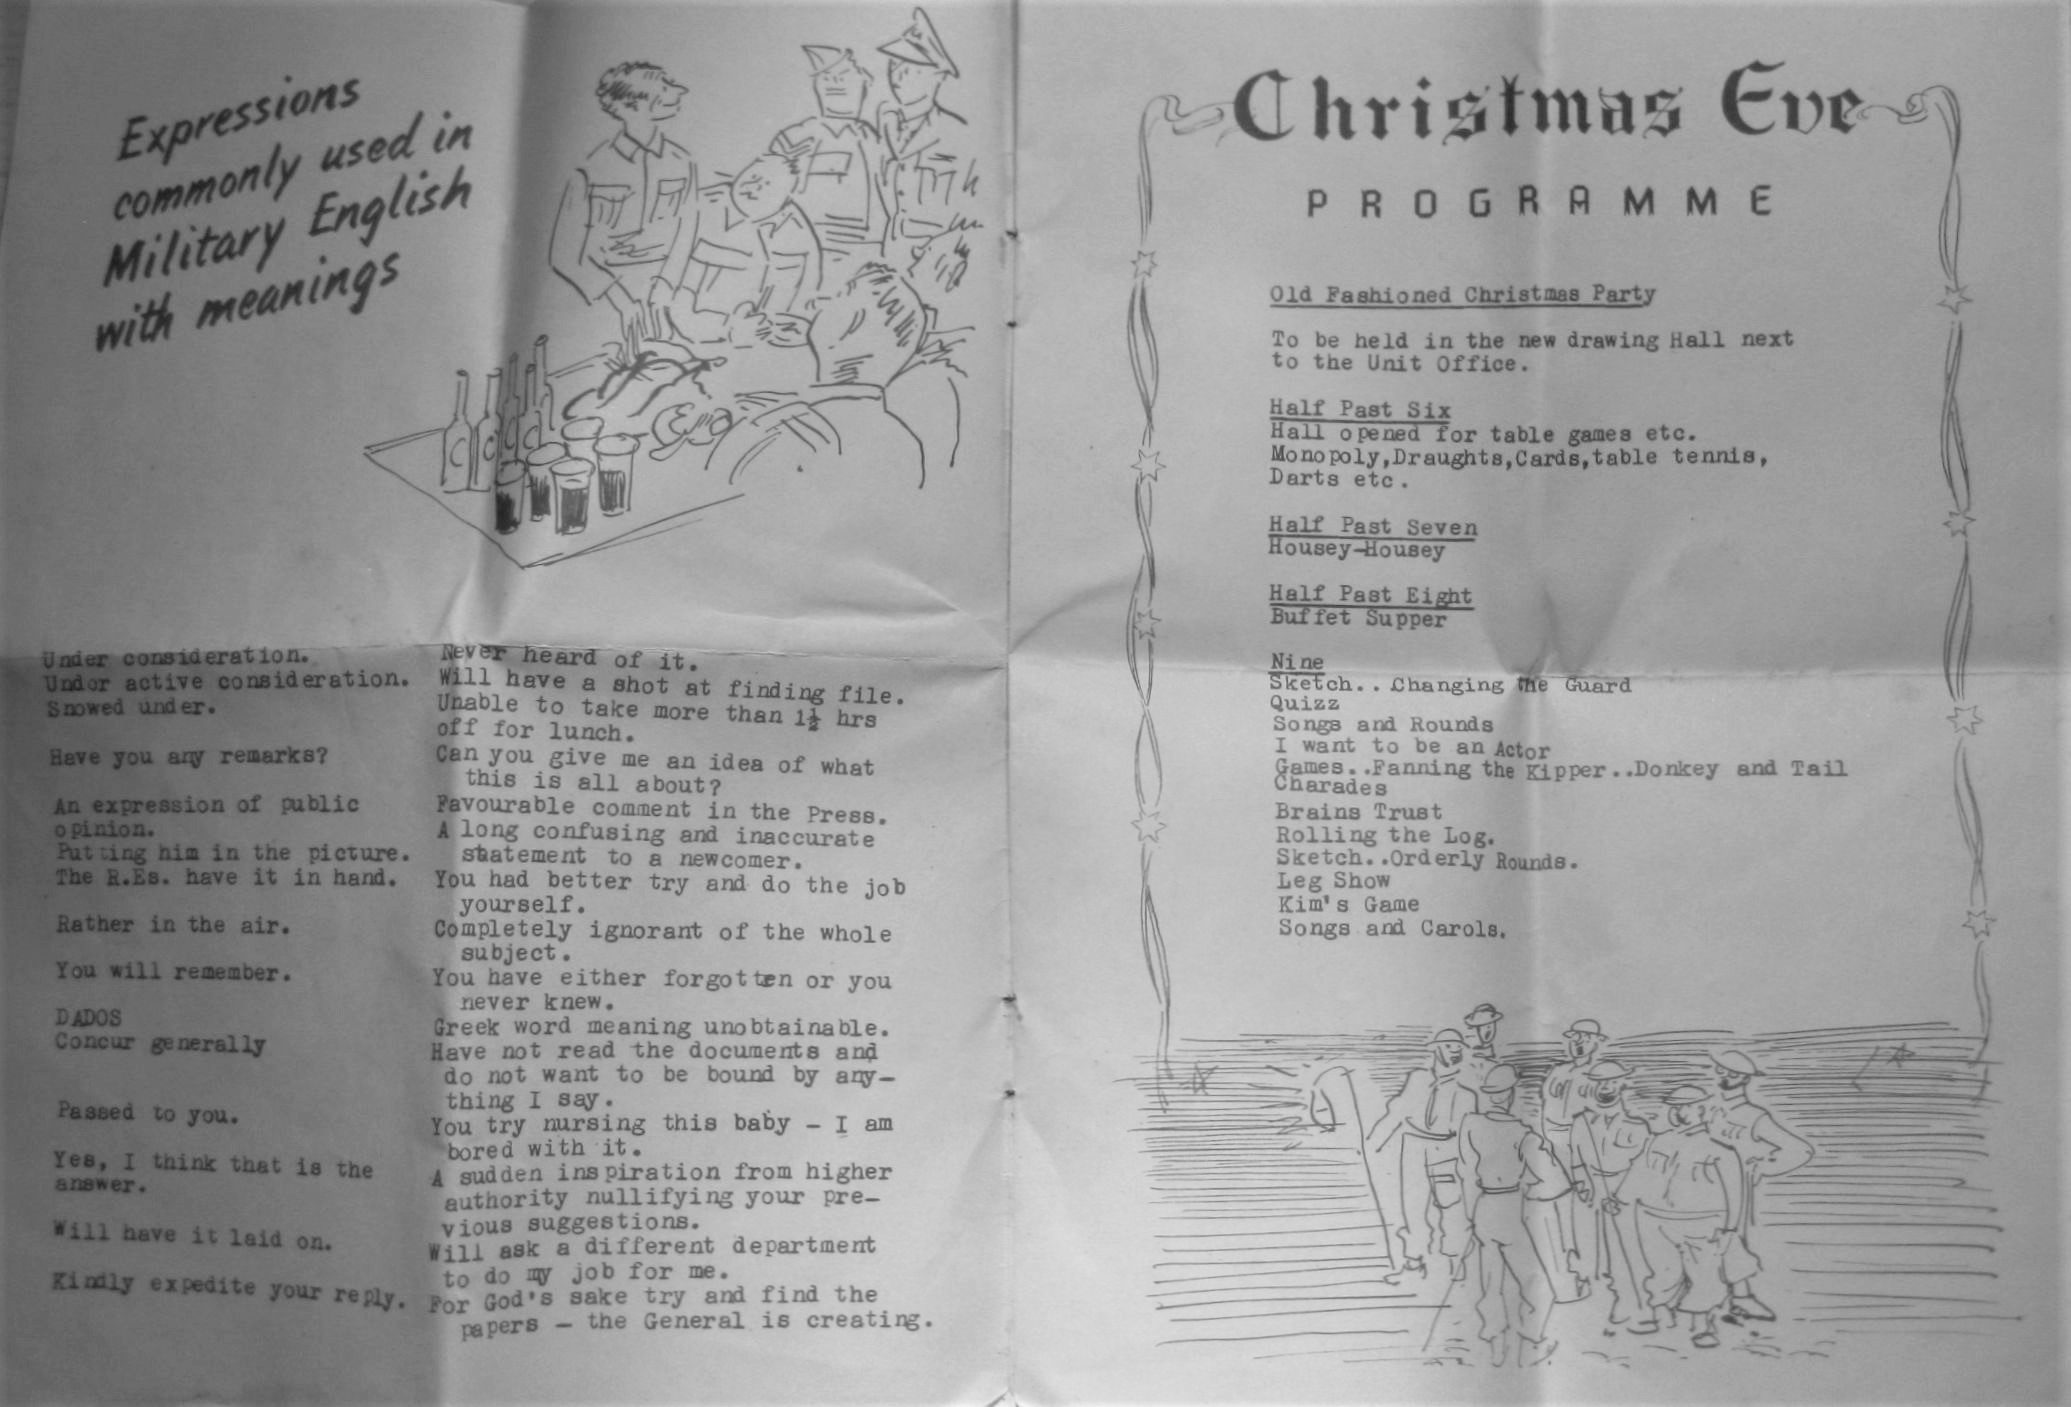 Expressions
commonly used in
Military English
with meanings
Under consideration. Never heard of it.
Under active consideration. Will have a shot at finding file.
Snowed under. Unable to take more than 1½ hrs
off for lunch.
Have you any remarks? Can you give me an idea of what
this is all about?
An expression of public Favourable comment in the Press.
opinion. A long confusing and inaccurate
Putting him in the picture. statement to a newcomer.
The R.Es. have it in hand. You had better try and do the job
yourself.
Rather in the air. Completely ignorant of the whole
subject.
You will remember. You have either forgotten or you
never knew.
DADOS Greek word meaning unobtainable.
Concur generally Have not read the documents and
do not want to be bound by any-
thing I say.
Passed to you. You try nursing this baby - I am
bored with it.
Yes, I think that is the A sudden inspiration from higher
answer. authority nullifying your pre-
vious suggestions.
Will have it laid on. Will ask a different department
to do my job for me.
Kindly expedite your reply. For God's sake try and find the
papers - the General is creating.
Christmas Eve
PROGRAMME
Old Fashioned Christmas Party
To be held in the new drawing Hall next
to the Unit Office.
Half Past Six
Hall opened for table games etc.
Monopoly,Draughts,Cards,table tennis,
Darts etc.
Half Past Seven
Housey-Housey
Half Past Eight
Buffet Supper
Nine
Sketch.. Changing the Guard
Quizz
Songs and Rounds
I want to be an Actor
Games..Fanning the Kipper..Donkey and Tail
Charades
Brains Trust
Rolling the Log.
Sketch..Orderly Rounds.
Leg Show
Kim's Game
Songs and Carols.